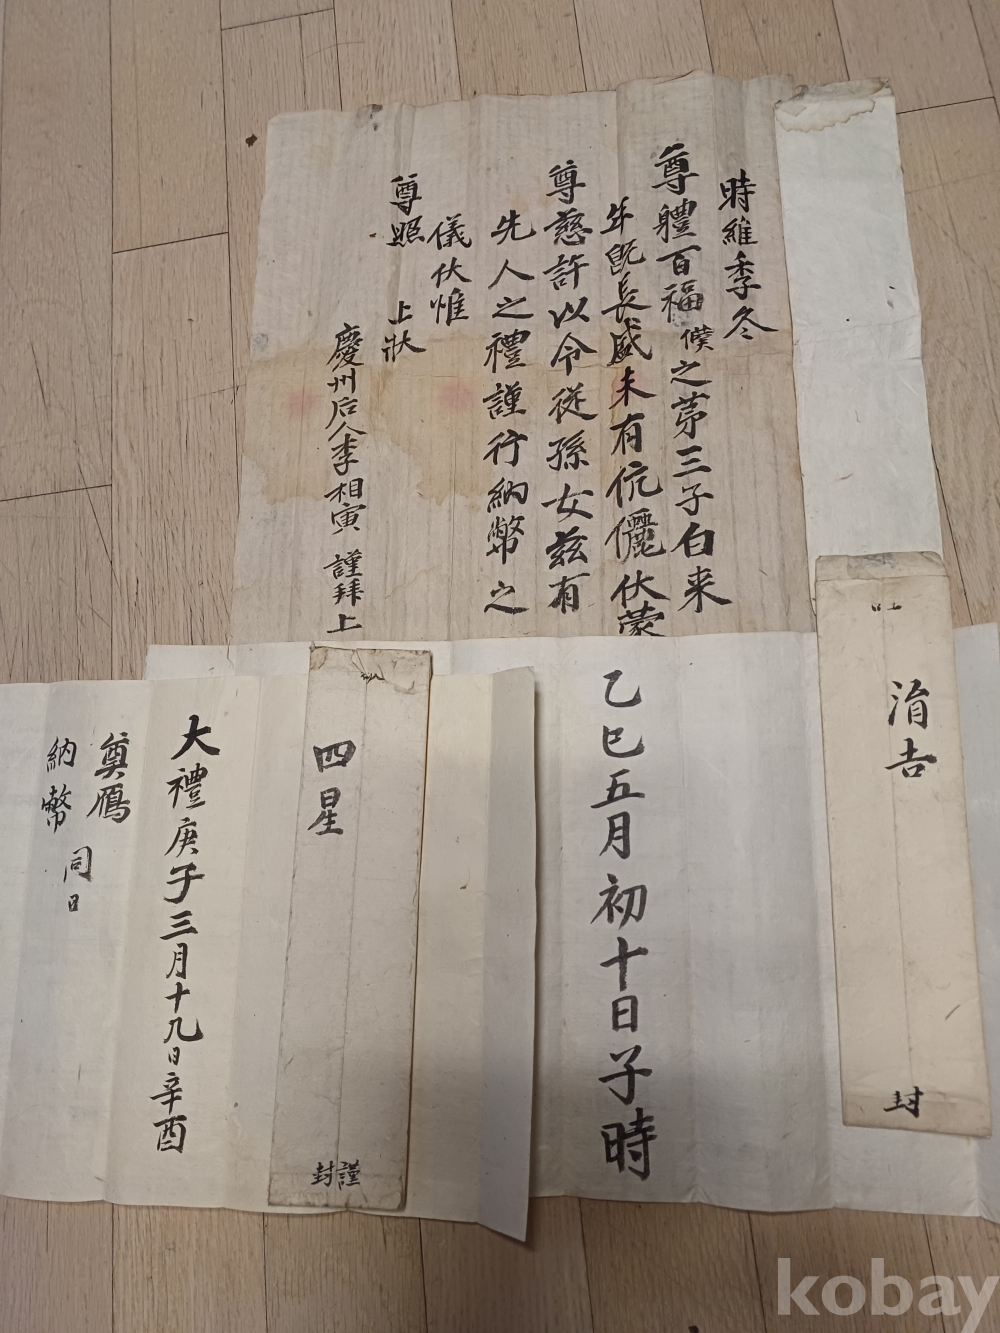 時維季冬
尊體百福 僕之苐三子白来
年旣長盛未有伉儷伏蒙
尊慈許以令從孫女玆有
先人之禮謹行納幣之
儀伏惟
尊照 上狀
慶州后人李相寅 謹拜上
涓吉
封
乙巳五月初十日子時
四星
謹封
大禮庚子三月十九日辛酉
奠鴈
納幣 同日
kobay